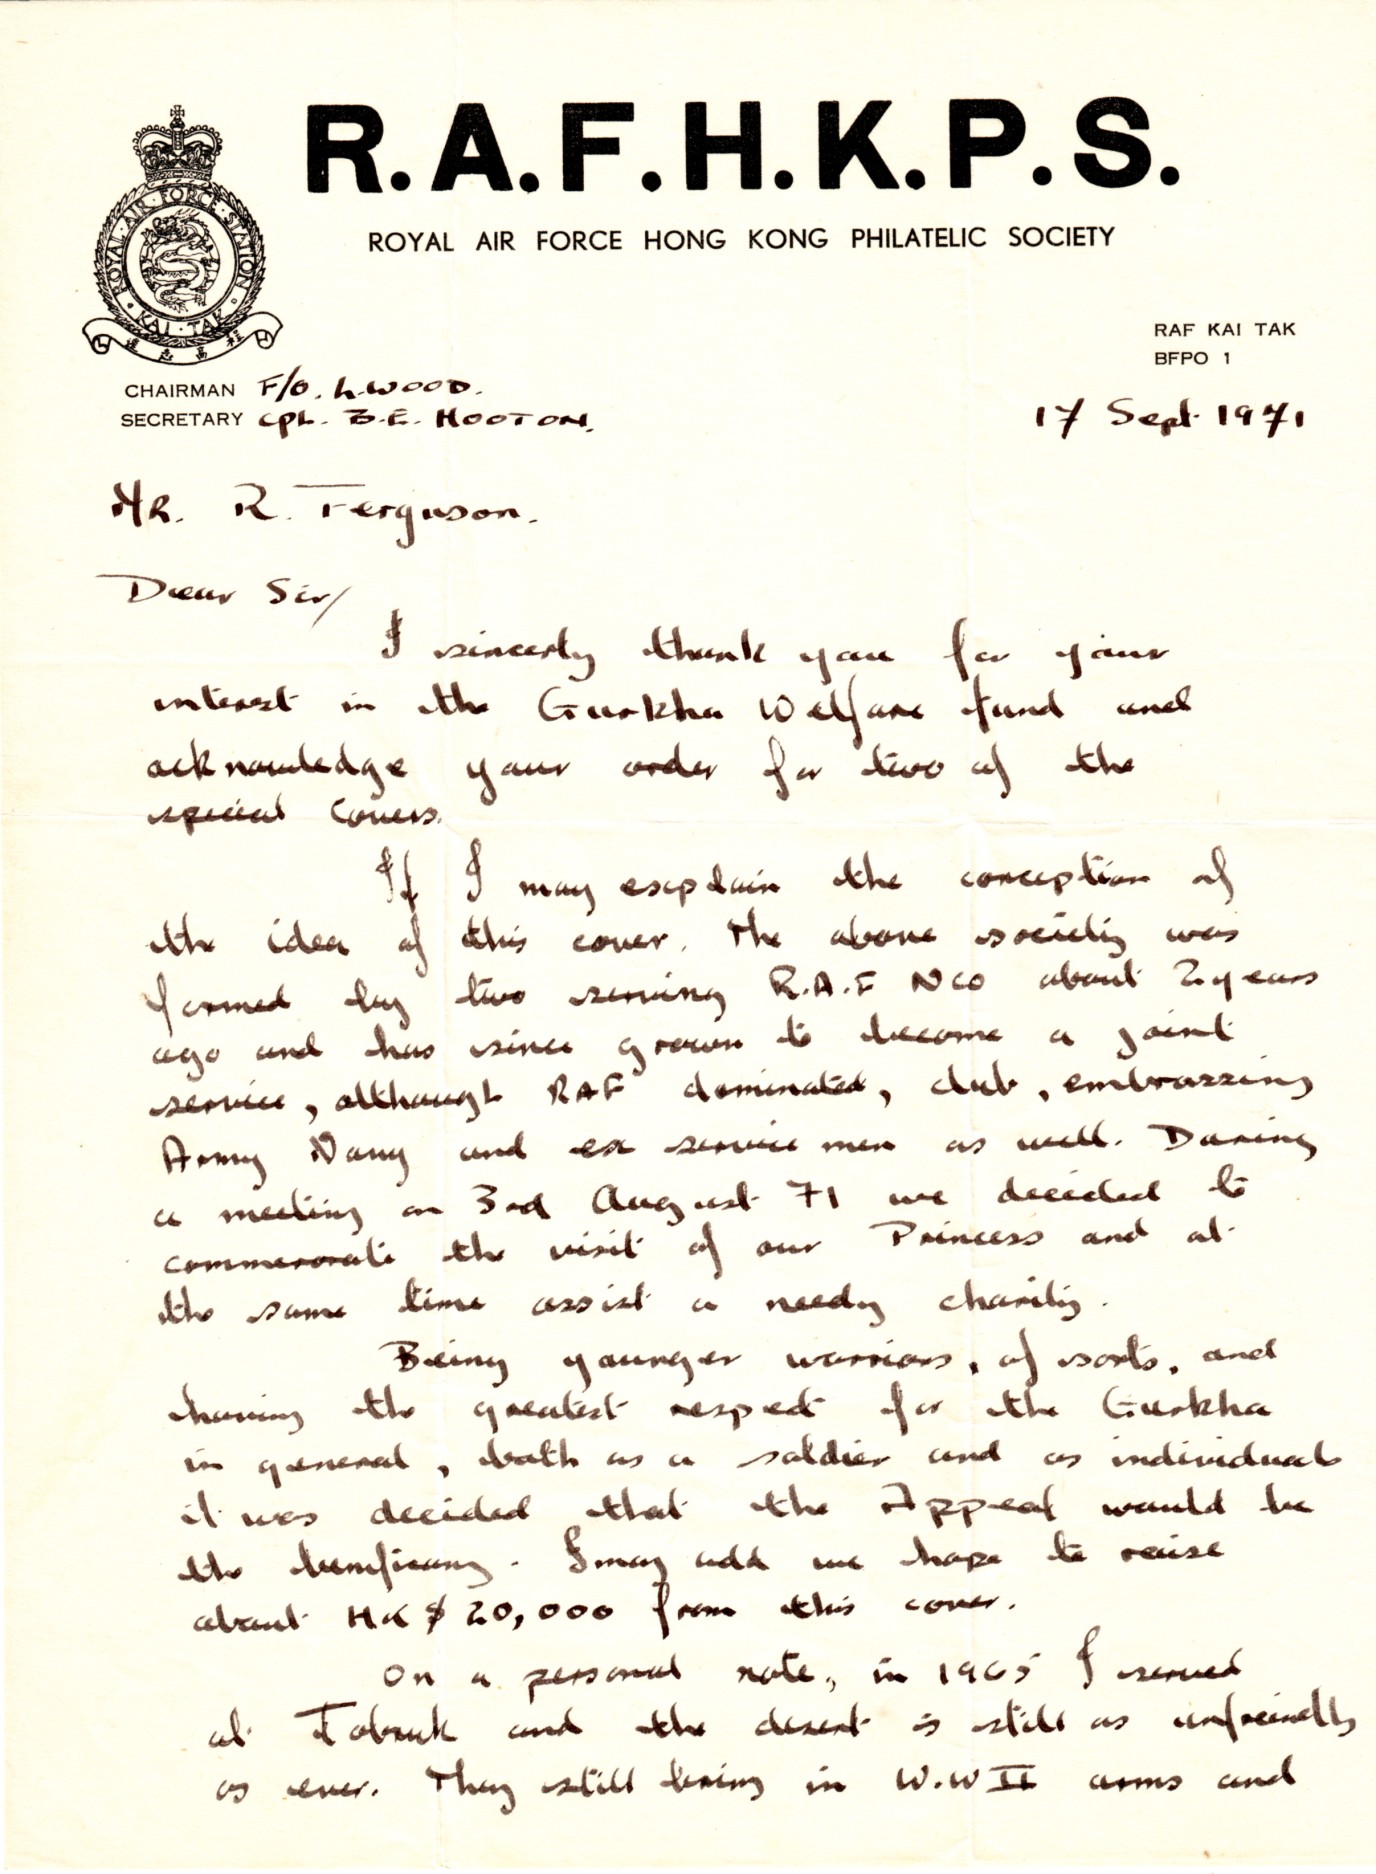 R.A.F.H.K.P.S.
ROYAL AIR FORCE HONG KONG PHILATELIC SOCIETY
ROYAL · AIR · FORCE · STATION
KAI · TAK
RAF KAI TAK
BFPO 1
CHAIRMAN F/O. L. WOOD.
SECRETARY CPL. B.E. HOOTON.
17 Sept. 1971
MR. R. Ferguson.
Dear Sir/
I sincerly thank you for your
interest in the Gurkha Welfare fund and
acknowledge your order for two of the
special covers.
If I may explain the conception of
the idea of this cover. The above society was
formed by two serving R.A.F NCO about 2 years
ago and has since grown to become a joint
service, although RAF dominated, club, embrassing
Army Navy and ex service men as well. During
a meeting on 3rd August 71 we decided to
commerorate the visit of our Princess and at
the same time assist a needy charity.
Being younger warriors, of sorts, and
having the greatest respect for the Gurkha
in general, both as a soldier and as individuals
it was decided that the Appeal would be
the benificary. I may add we hope to raise
about HK $ 20,000 from this cover.
On a personal note, in 1965 I served
at Tobruk and the desert is still as unfreindly
as ever. They still bring in W.W II arms and